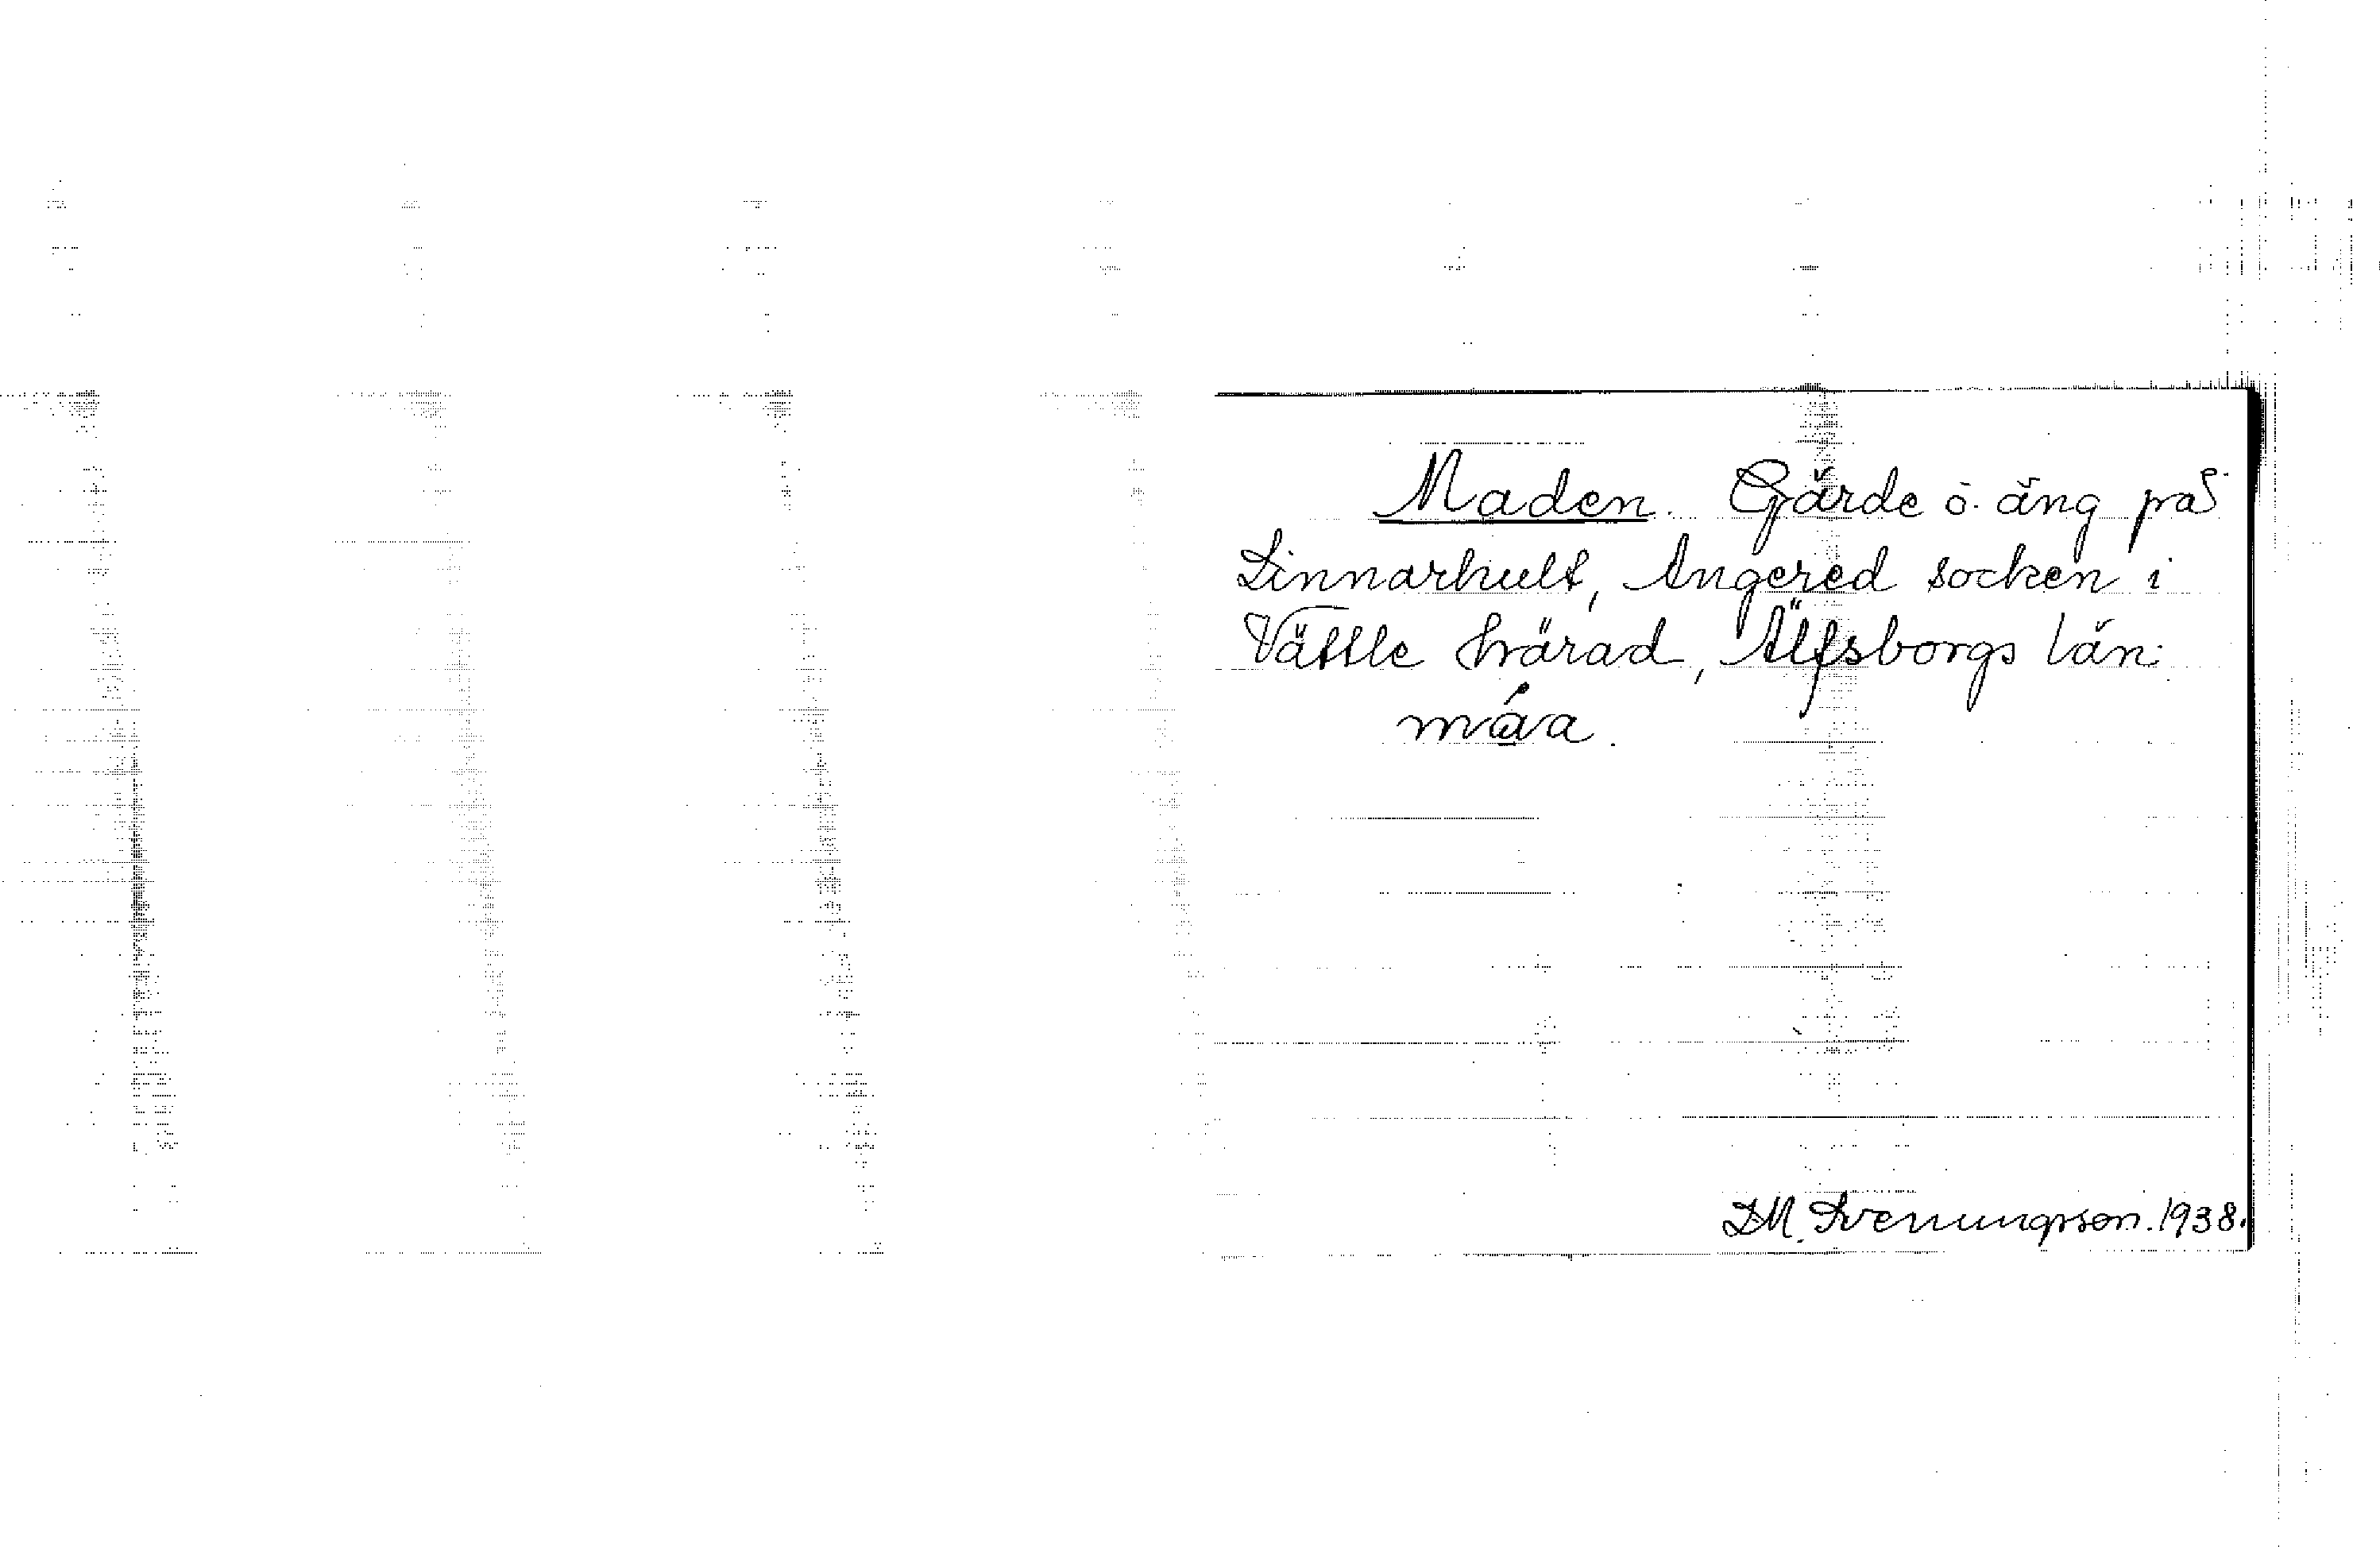 Maden. Gärde o. äng på
Linnarhult, Angered socken i
Vättle härad, Älfsborgs län.
máa.
D.M. Svenungsson. 1938.